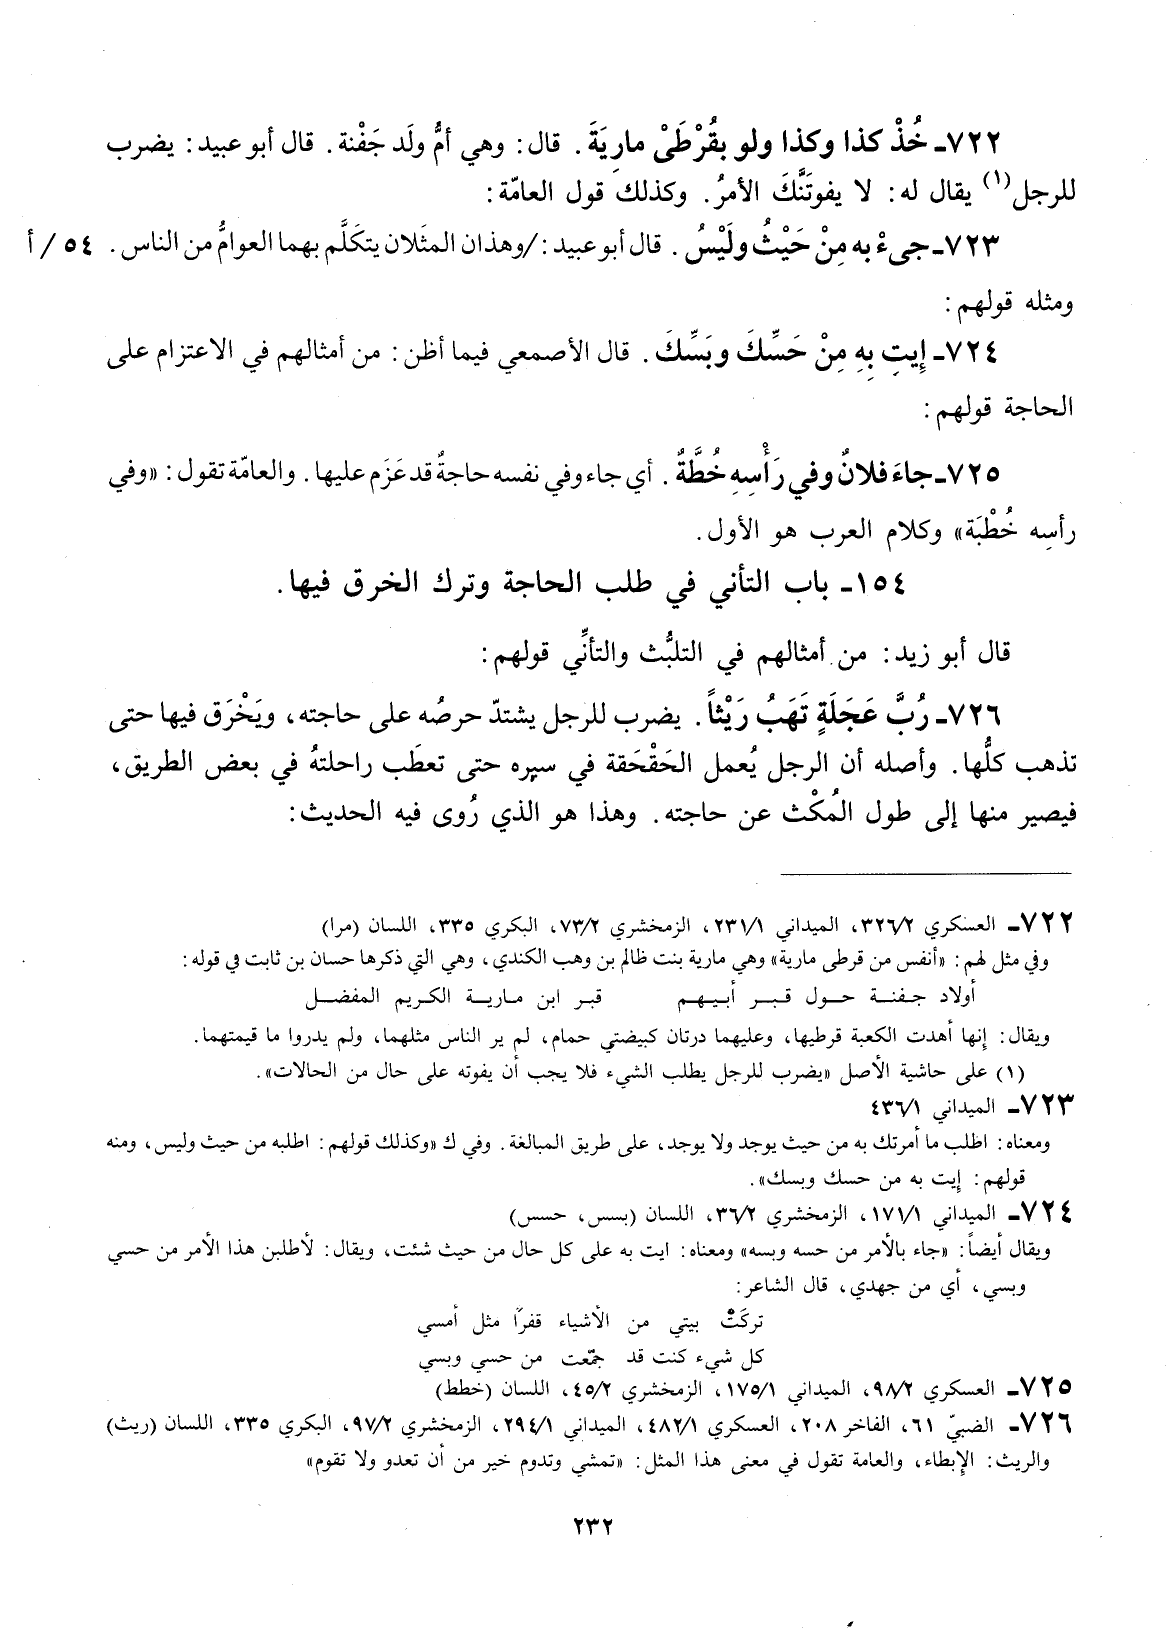 ٧٢٢ـ خُذْ كذا وكذا ولو بقُرْطَىْ مارِيَةَ . قال: وهي أمُّ ولَد جَفْنة. قال أبو عبيد: يضرب
للرجل(١) يقال له: لا يفوتَنَّكَ الأمرُ. وكذلك قول العامّة:
٧٢٣ـ جىءْ به مِنْ حَيْثُ ولَيْسُ . قال أبو عبيد: /وهذان المثَلان يتكَلَّم بهما العوامُّ من الناس. ٥٤ / أ
ومثله قولهم:
٧٢٤ـ إيتِ بِهِ مِنْ حَسِّكَ وبَسِّكَ . قال الأصمعي فيما أظن: من أمثالهم في الاعتزام على
الحاجة قولهم:
٧٢٥ـ جاءَ فلانٌ وفي رَأْسِهِ خُطَّةٌ . أي جاء وفي نفسه حاجةٌ قد عَزَم عليها. والعامّة تقول: «وفي
رأسِه خُطْبَة» وكلام العرب هو الأول.
١٥٤ـ باب التأني في طلب الحاجة وترك الخرق فيها.
قال أبو زيد: من أمثالهم في التلبُّث والتأنِّي قولهم:
٧٢٦ـ رُبَّ عَجَلَةٍ تَهَبُ رَيْثاً. يضرب للرجل يشتدّ حرصُه على حاجته، ويَخْرَق فيها حتى
تذهب كلُّها. وأصله أن الرجل يُعمل الحَقْحَقة في سيره حتى تعطَب راحلتهُ في بعض الطريق،
فيصير منها إلى طول المُكْث عن حاجته. وهذا هو الذي رُوى فيه الحديث:
٧٢٢ـ العسكري ٣٢٦/٢، الميداني ٢٣١/١، الزمخشري ٧٣/٢، البكري ٣٣٥، اللسان (مرا)
وفي مثل لهم: «أنفس من قرطى مارية» وهي مارية بنت ظالم بن وهب الكندي، وهي التي ذكرها حسان بن ثابت في قوله:
أولاد جفنة حول قبر أبيهم قبر ابن مارية الكريم المفضل
ويقال: إنها أهدت الكعبة قرطيها، وعليهما درتان كبيضتي حمام، لم ير الناس مثلهما، ولم يدروا ما قيمتهما.
(١) على حاشية الأصل «يضرب للرجل يطلب الشيء فلا يجب أن يفوته على حال من الحالات».
٧٢٣ـ الميداني ٤٣٦/١
ومعناه: اطلب ما أمرتك به من حيث يوجد ولا يوجد، على طريق المبالغة. وفي ك «وكذلك قولهم: اطلبه من حيث وليس، ومنه
قولهم: إيت به من حسك وبسك».
٧٢٤ـ الميداني ١٧١/١، الزمخشري ٣٦/٢، اللسان (بسس، حسس)
ويقال أيضاً: «جاء بالأمر من حسه وبسه» ومعناه: ايت به على كل حال من حيث شئت، ويقال: لأطلبن هذا الأمر من حسي
وبسي، أي من جهدي، قال الشاعر:
تركَتْ بيتي من الأشياء قفرًا مثل أمسي
كل شيء كنت قد جمّعت من حسي وبسي
٧٢٥ـ العسكري ٩٨/٢، الميداني ١٧٥/١، الزمخشري ٤٥/٢، اللسان (خطط)
٧٢٦ـ الضبيّ ٦١، الفاخر ٢٠٨، العسكري ٤٨٢/١، الميداني ٢٩٤/١، الزمخشري ٩٧/٢، البكري ٣٣٥، اللسان (ريث)
والريث: الإبطاء، والعامة تقول في معنى هذا المثل: «تمشي وتدوم خير من أن تعدو ولا تقوم»
٢٣٢